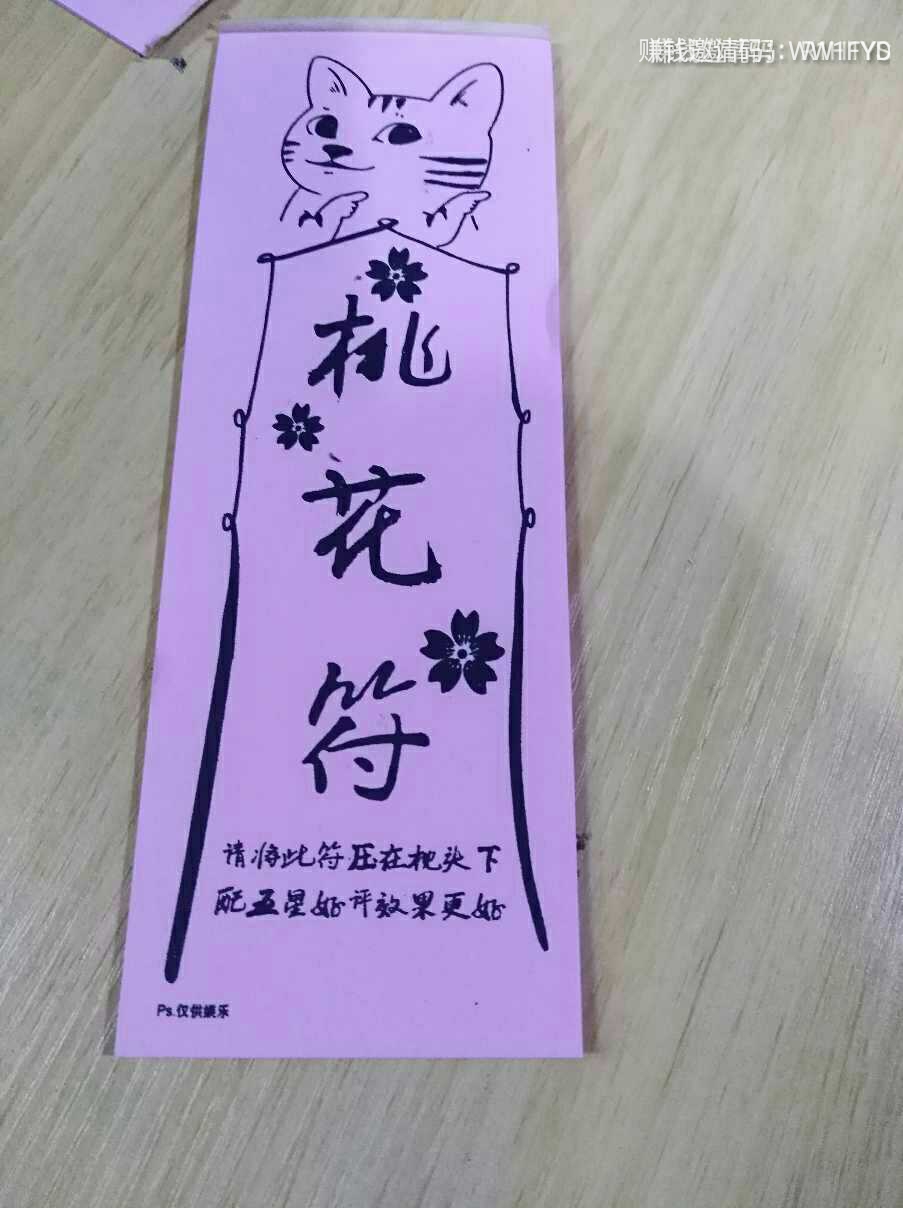 桃花符
请将此符压在枕头下
配五星好评效果更好
Ps.仅供娱乐